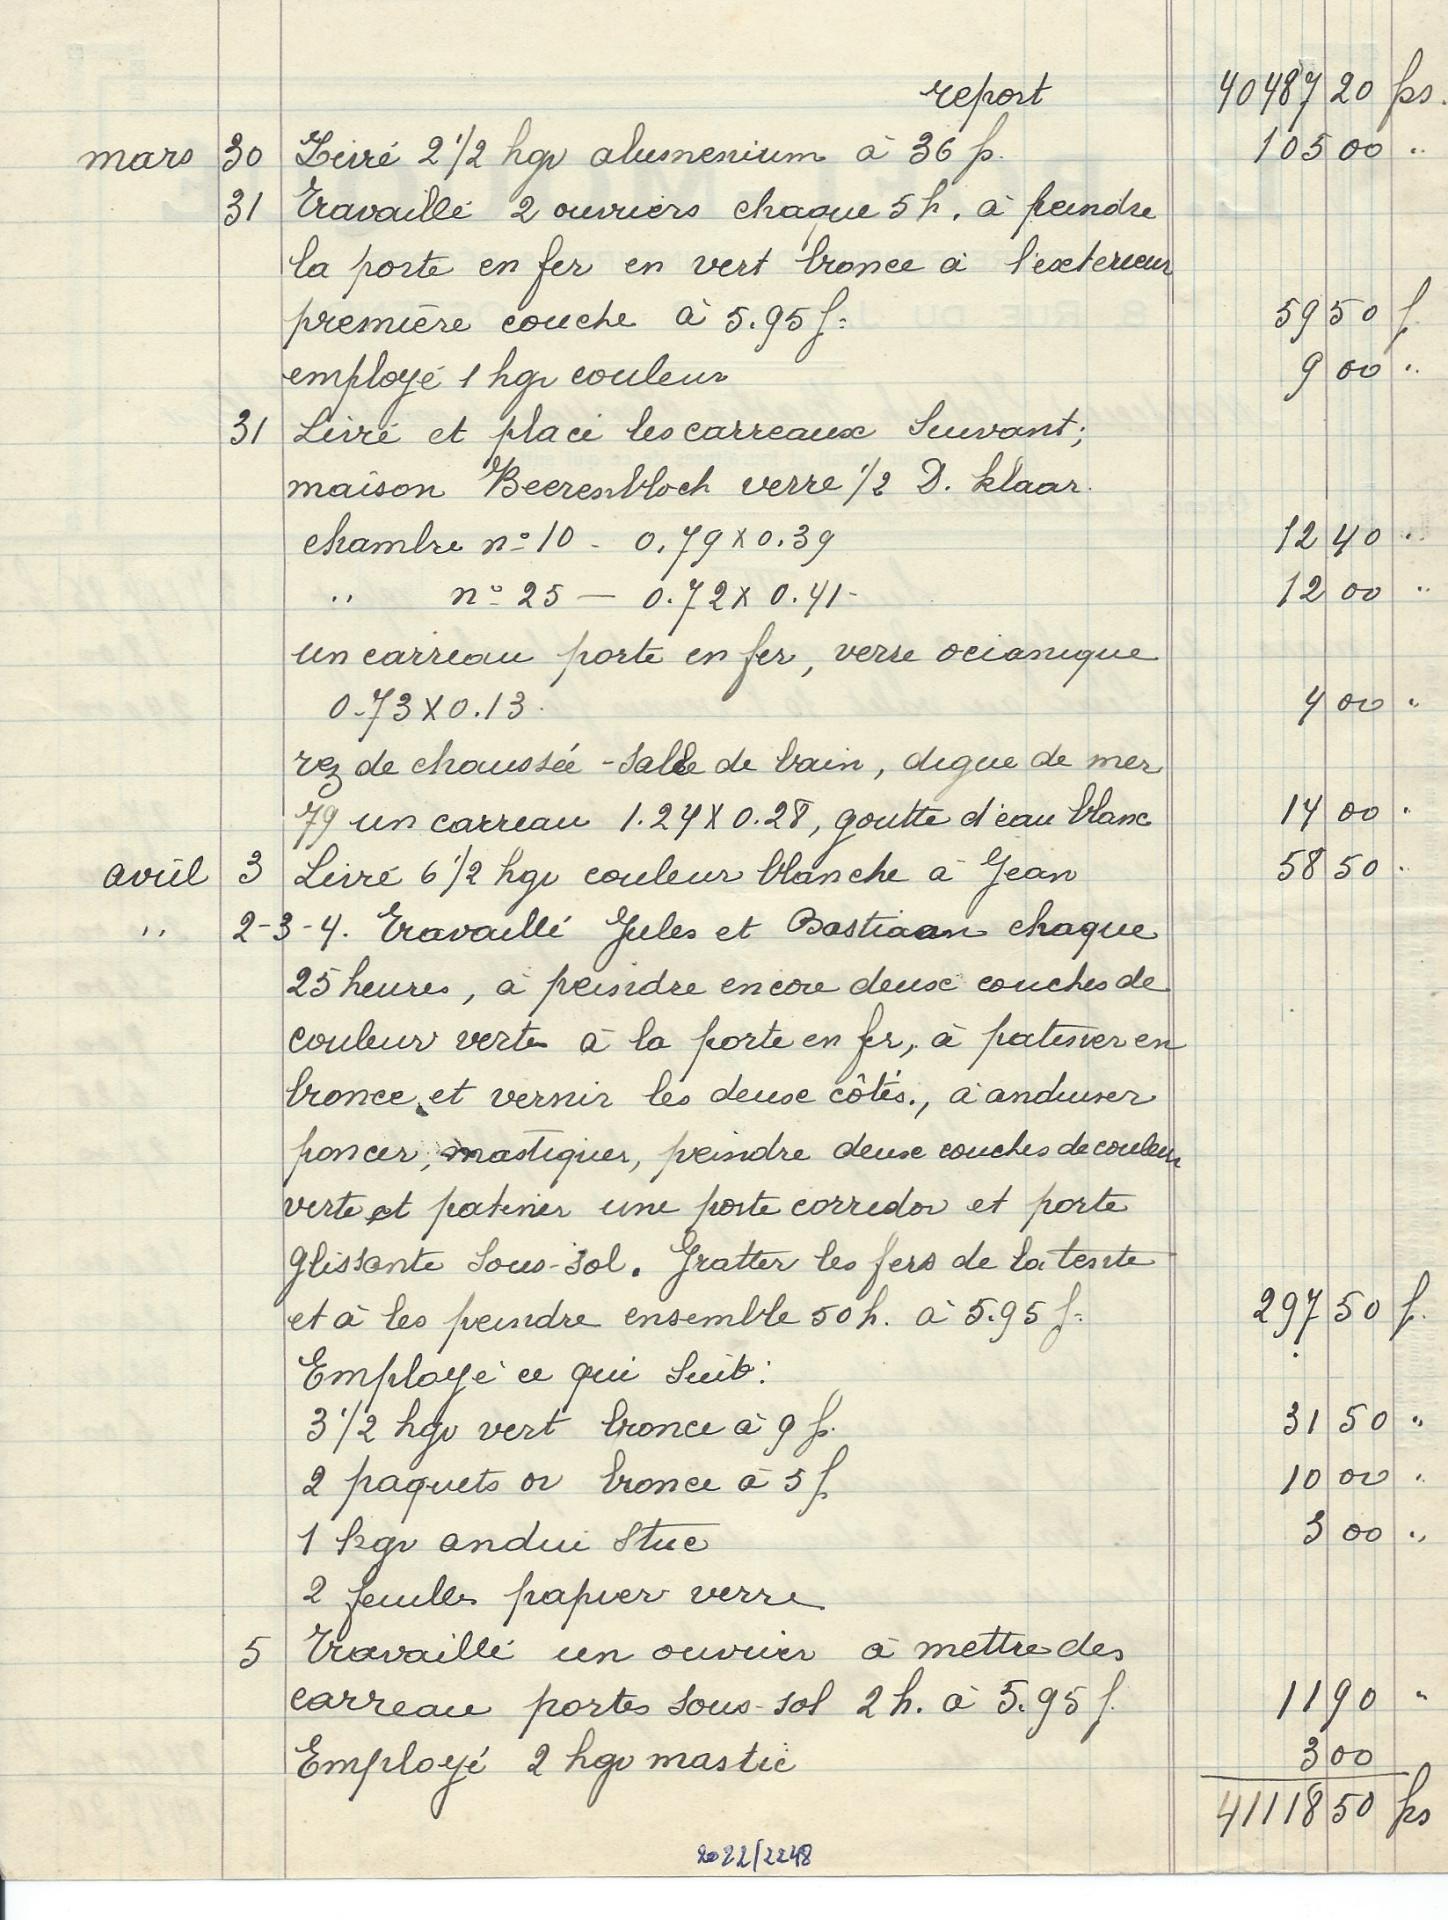 report 40487 20 frs.
mars 30 Livré 2 1/2 kgr alumenium à 36 fr. 105 00 "
31 Travaillé 2 ouvriers chaque 5 h. à peindre
la porte en fer en vert bronce à l'exterieur
première couche à 5.95 f. 59 50 f
employé 1 kgr couleur 9 00 "
31 Livré et placé les carreaux Suivant;
maison Beerenbloch verre 1/2 D. klaar.
chambre n° 10 - 0.79 x 0.39 12 40 "
" n° 25 — 0.72 x 0.41 - 12 00 "
un carreau porte en fer, verre ocianique
0.73 x 0.13. 4 00 "
rez de chaussée - Salle de bain, digue de mer
79 un carreau 1.24 x 0.28, goutte d'eau blanc 14 00 "
avril 3 Livré 6 1/2 kgr couleur blanche à Jean 58 50 "
" 2-3-4. Travaillé Jules et Bastiaan chaque
25 heures, à peindre encore deuse couches de
couleur verte à la porte en fer, à patiner en
bronce, et vernir les deuse côtés., à anduiser
poncer, mastiquer, peindre deuse couches de couleur
verte et patiner une porte corredor et porte
glissante Sous-Sol. Gratter les fers de la tente
et à les peindre ensemble 50 h. à 5.95 f. 297 50 f.
Employé ce qui Suit:
3 1/2 kgr vert bronce à 9 f. 31 50 "
2 paquets or bronce à 5 f. 10 00 "
1 kgr andui Stuc 3 00 "
2 feuilles papier verre
5 Travaillé un ouvrier à mettre des
carreau portes Sous-Sol 2 h. à 5.95 f. 11 90 "
Employé 2 kgr mastic 3 00
41118 50 frs
2022/2248